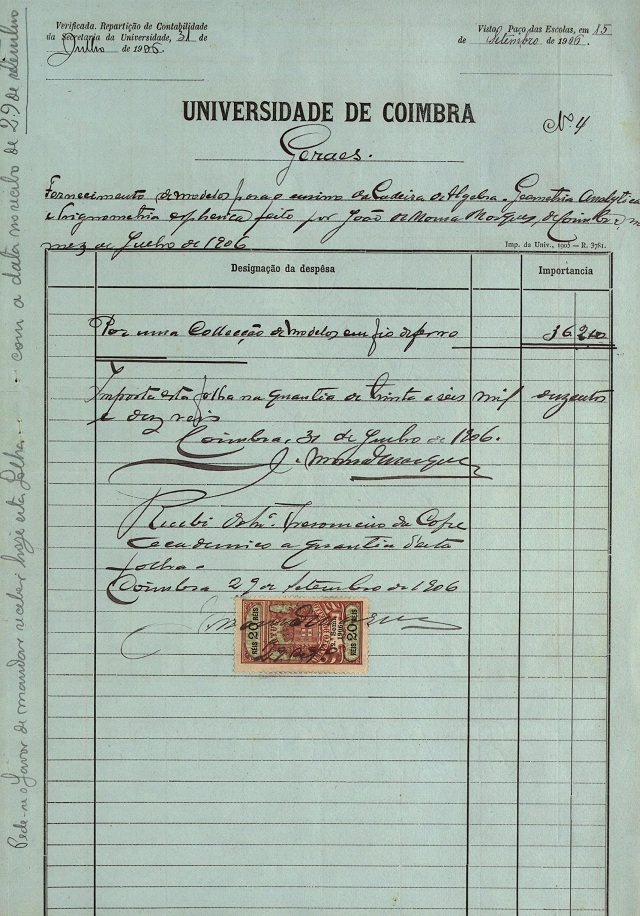 Verificada. Repartição de Contabilidade
da Secretaria da Universidade, 31 de
Julho de 1906.
Visto, Paço das Escolas, em 15
de Setembro de 1906.
UNIVERSIDADE DE COIMBRA
Nº 4
Geraes.
Fornecimento de modelos para o ensino da Cadeira de Algebra, Geometria Analytica
e Trignometria espherica feito por João de Moura Marques, de Coimbra, no
mez de Julho de 1906
Imp. da Univ., 1905 — R. 3781.
Designação da despêsa
Importancia
Por uma Collecção de modelos em fio de ferro
36 210
Importa esta folha na quantia de trinta e seis mil duzentos
e dez reis
Coimbra, 31 de Julho de 1906.
J. Moura Marques
Recebi do Thesoureiro do Cofre
academico a quantia desta
folha.
Coimbra 29 de Setembro de 1906
REIS 20 REIS 20
Pede-se o favor de mandar receber hoje esta folha... com a data no recibo de 29 de setembro